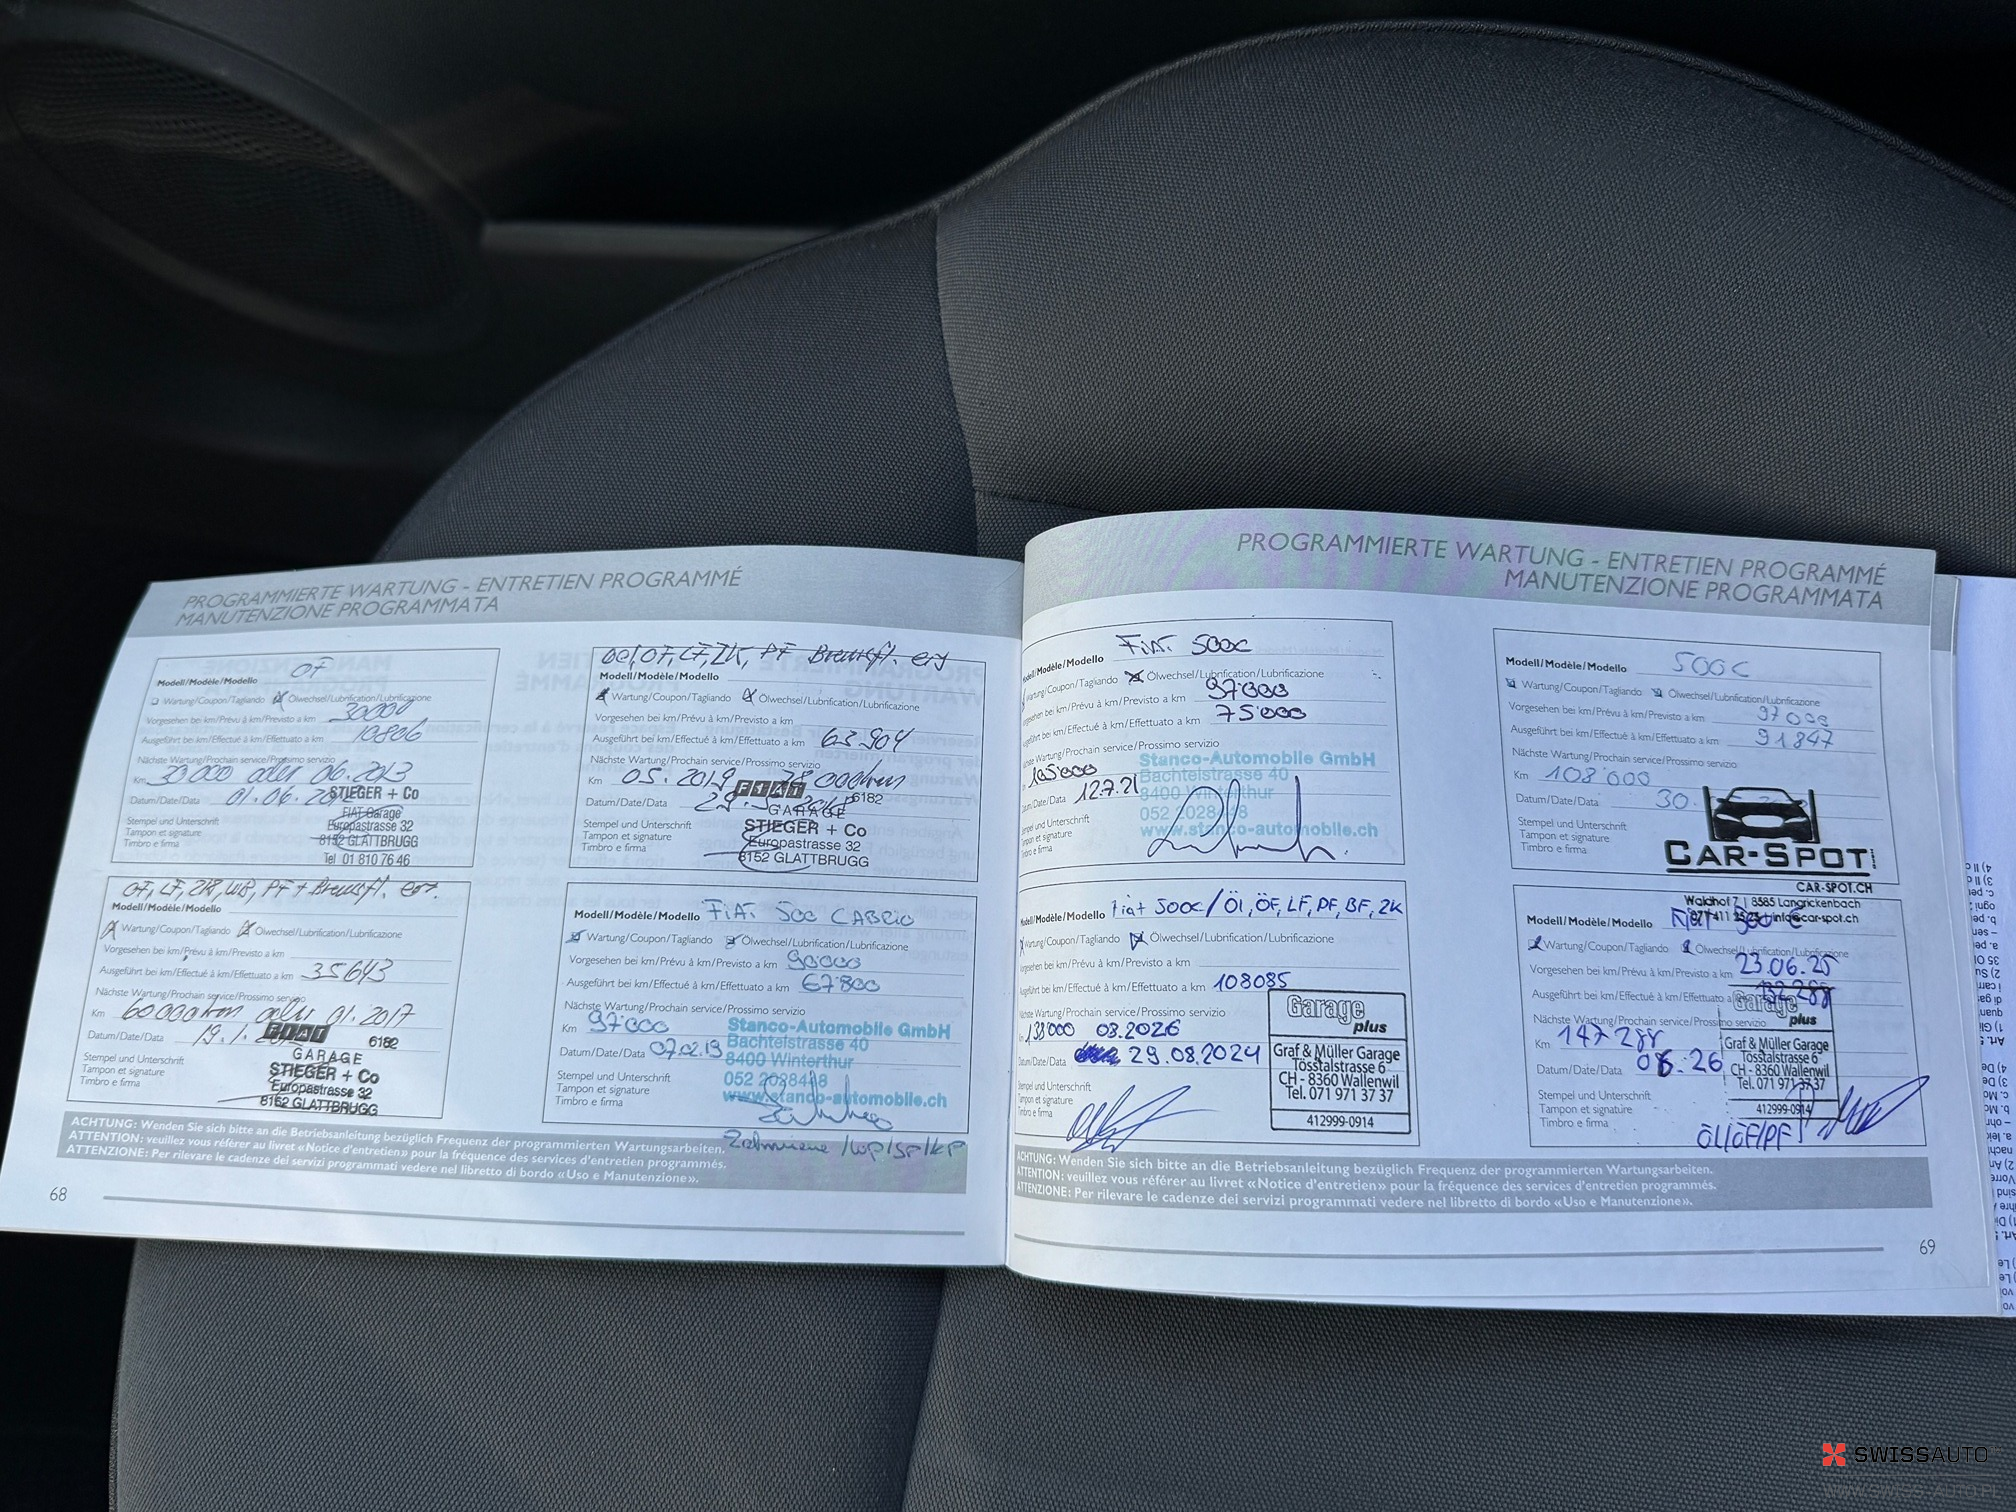 PROGRAMMIERTE WARTUNG - ENTRETIEN PROGRAMMÉ
MANUTENZIONE PROGRAMMATA
OF
Modell/Modèle/Modello
Wartung/Coupon/Tagliando Ölwechsel/Lubrification/Lubrificazione
Vorgesehen bei km/Prévu à km/Previsto a km 30000
Ausgeführt bei km/Effectué à km/Effettuato a km
Nächste Wartung/Prochain service/Prossimo servizio
Km 30.000 oder 06.2013
Datum/Date/Data 01.06.
STIEGER + Co
FIAT Garage
Europastrasse 32
8152 GLATTBRUGG
Tel 01 810 76 46
Stempel und Unterschrift
Tampon et signature
Timbro e firma
Oel, OF, LF, ZK, PF Bremsfl. ers
Modell/Modèle/Modello
Wartung/Coupon/Tagliando Ölwechsel/Lubrification/Lubrificazione
Vorgesehen bei km/Prévu à km/Previsto a km
Ausgeführt bei km/Effectué à km/Effettuato a km 63.904
Nächste Wartung/Prochain service/Prossimo servizio
Km 05.2019 78000km
Datum/Date/Data
FIAT 6182
GARAGE
STIEGER + Co
Europastrasse 32
8152 GLATTBRUGG
Stempel und Unterschrift
Tampon et signature
Timbro e firma
OF, LF, PF + Bremsfl.
Modell/Modèle/Modello
Wartung/Coupon/Tagliando Ölwechsel/Lubrification/Lubrificazione
Vorgesehen bei km/Prévu à km/Previsto a km
Ausgeführt bei km/Effectué à km/Effettuato a km 35643
Nächste Wartung/Prochain service/Prossimo servizio
Km 60000km oder 01.2017
Datum/Date/Data 19.1.
FIAT 6182
GARAGE
STIEGER + Co
Europastrasse 32
8152 GLATTBRUGG
Stempel und Unterschrift
Tampon et signature
Timbro e firma
Modell/Modèle/Modello FIAT 500 CABRIO
Wartung/Coupon/Tagliando Ölwechsel/Lubrification/Lubrificazione
Vorgesehen bei km/Prévu à km/Previsto a km 90000
Ausgeführt bei km/Effectué à km/Effettuato a km 67'800
Nächste Wartung/Prochain service/Prossimo servizio
Km 97'000
Datum/Date/Data 07.02.19
Stanco-Automobile GmbH
Bachtelstrasse 40
8400 Winterthur
052 2028448
www.stanco-automobile.ch
Stempel und Unterschrift
Tampon et signature
Timbro e firma
ACHTUNG: Wenden Sie sich bitte an die Betriebsanleitung bezüglich Frequenz der programmierten Wartungsarbeiten.
ATTENTION: veuillez vous référer au livret «Notice d'entretien» pour la fréquence des services d'entretien programmés.
ATTENZIONE: Per rilevare le cadenze dei servizi programmati vedere nel libretto di bordo «Uso e Manutenzione».
68
PROGRAMMIERTE WARTUNG - ENTRETIEN PROGRAMMÉ
MANUTENZIONE PROGRAMMATA
Modell/Modèle/Modello FIAT 500C
Wartung/Coupon/Tagliando Ölwechsel/Lubrification/Lubrificazione
Vorgesehen bei km/Prévu à km/Previsto a km 97'000
Ausgeführt bei km/Effectué à km/Effettuato a km 75'000
Nächste Wartung/Prochain service/Prossimo servizio
105'000
Datum/Date/Data 12.7.21
Stanco-Automobile GmbH
Bachtelstrasse 40
8400 Winterthur
052 2028448
www.stanco-automobile.ch
Stempel und Unterschrift
Tampon et signature
Timbro e firma
Modell/Modèle/Modello 500C
Wartung/Coupon/Tagliando Ölwechsel/Lubrification/Lubrificazione
Vorgesehen bei km/Prévu à km/Previsto a km 97000
Ausgeführt bei km/Effectué à km/Effettuato a km 91'847
Nächste Wartung/Prochain service/Prossimo servizio
Km 108'000
Datum/Date/Data 30.
Stempel und Unterschrift
Tampon et signature
Timbro e firma
CAR-SPOT
CAR-SPOT.CH
Waldhof 7 | 8585 Langrickenbach
info@car-spot.ch
Modell/Modèle/Modello Fiat 500c/Öl, ÖF, LF, PF, BF, ZK
Wartung/Coupon/Tagliando Ölwechsel/Lubrification/Lubrificazione
Vorgesehen bei km/Prévu à km/Previsto a km
Ausgeführt bei km/Effectué à km/Effettuato a km 108085
Nächste Wartung/Prochain service/Prossimo servizio
133'000 03.2026
Datum/Date/Data 29.08.2024
Garage
plus
Graf & Müller Garage
Tösstalstrasse 6
CH - 8360 Wallenwil
Tel. 071 971 37 37
412999-0914
Stempel und Unterschrift
Tampon et signature
Timbro e firma
Modell/Modèle/Modello
Wartung/Coupon/Tagliando Ölwechsel/Lubrification/Lubrificazione
Vorgesehen bei km/Prévu à km/Previsto a km 23.06.25
Ausgeführt bei km/Effectué à km/Effettuato a km
Nächste Wartung/Prochain service/Prossimo servizio
Km 147288
Datum/Date/Data 06.26
Garage
plus
Graf & Müller Garage
Tösstalstrasse 6
CH - 8360 Wallenwil
Tel. 071 971 37 37
412999-0914
Stempel und Unterschrift
Tampon et signature
Timbro e firma
ÖL/ÖF/PF
ACHTUNG: Wenden Sie sich bitte an die Betriebsanleitung bezüglich Frequenz der programmierten Wartungsarbeiten.
ATTENTION: veuillez vous référer au livret «Notice d'entretien» pour la fréquence des services d'entretien programmés.
ATTENZIONE: Per rilevare le cadenze dei servizi programmati vedere nel libretto di bordo «Uso e Manutenzione».
69
SWISSAUTO